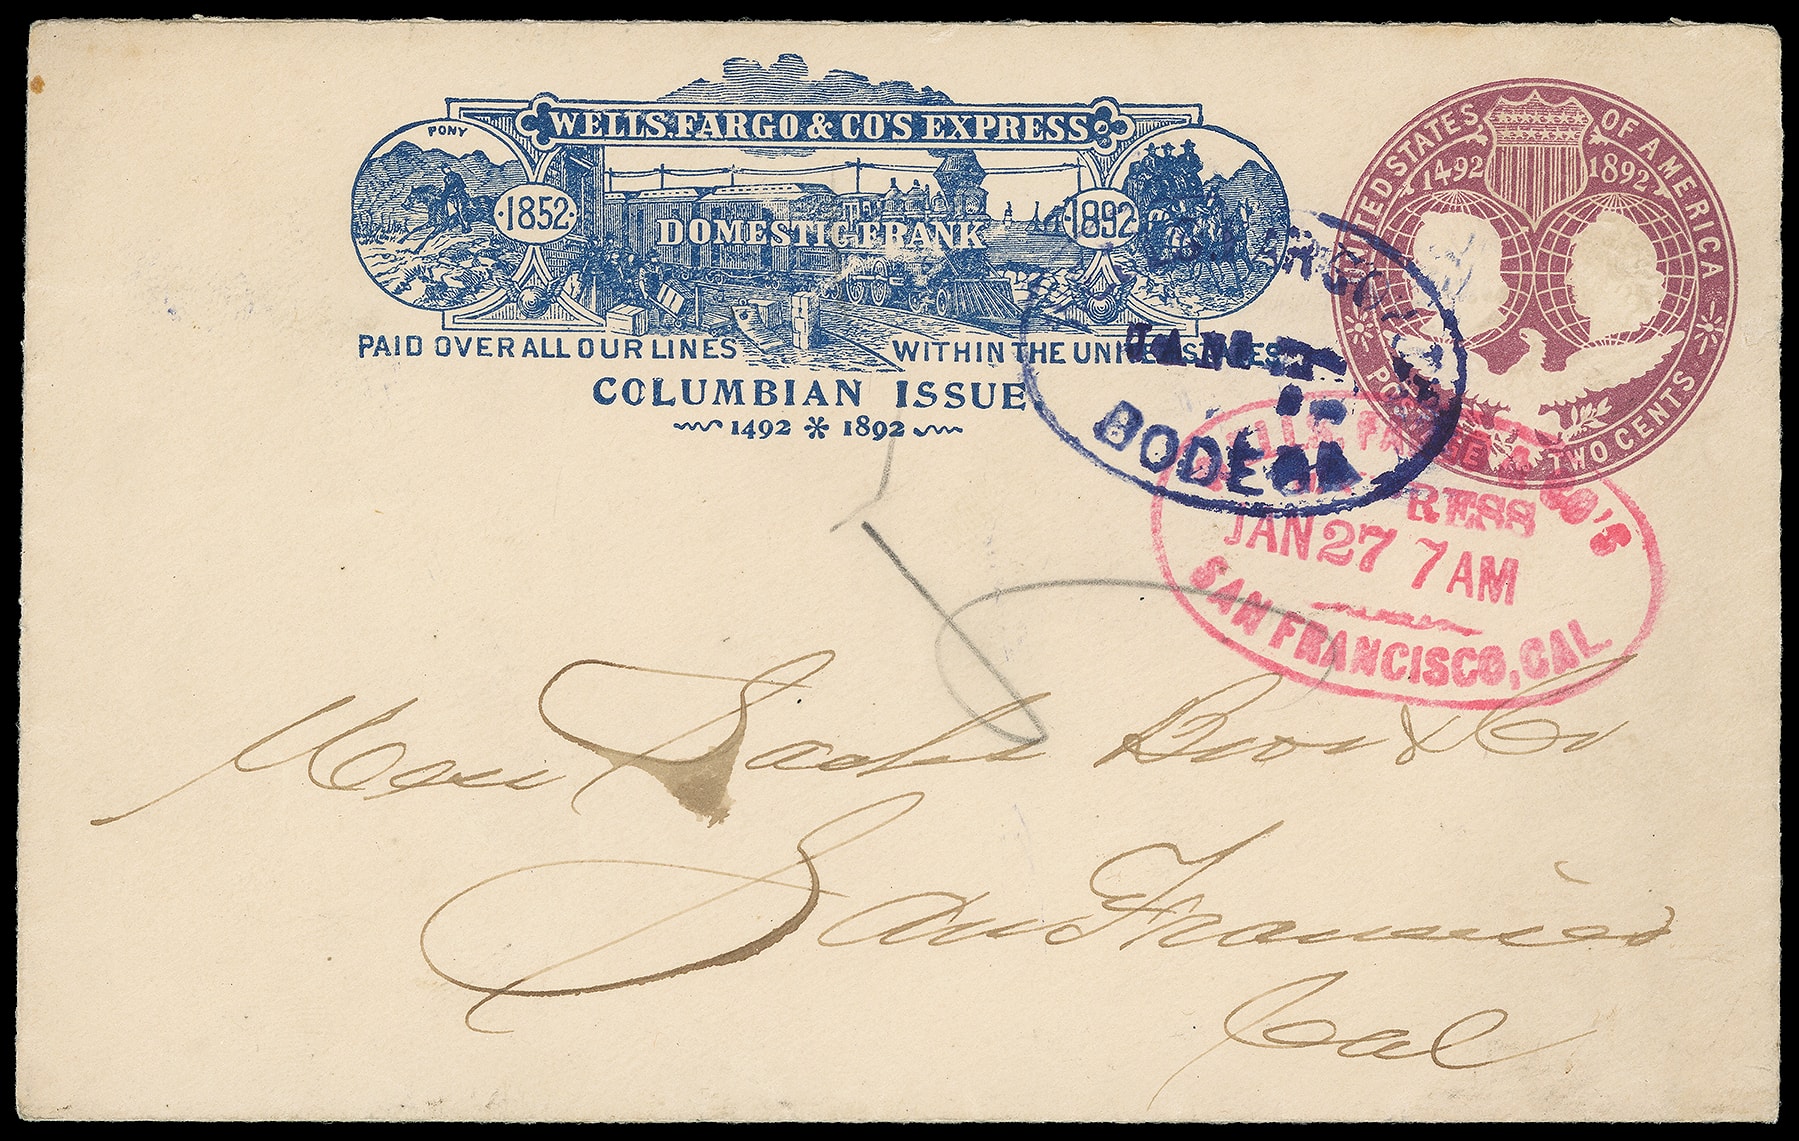 WELLS, FARGO & CO'S EXPRESS
PONY
·1852·
·1892·
DOMESTIC FRANK
PAID OVER ALL OUR LINES WITHIN THE UNITED STATES
COLUMBIAN ISSUE
1492 * 1892
UNITED STATES OF AMERICA
1492 1892
POSTAGE TWO CENTS
FARGO
JAN
BODEGA
WELLS FARGO & CO'S
EXPRESS
JAN 27 7 AM
SAN FRANCISCO, CAL.
Sachs Bros & Co
San Francisco
Cal